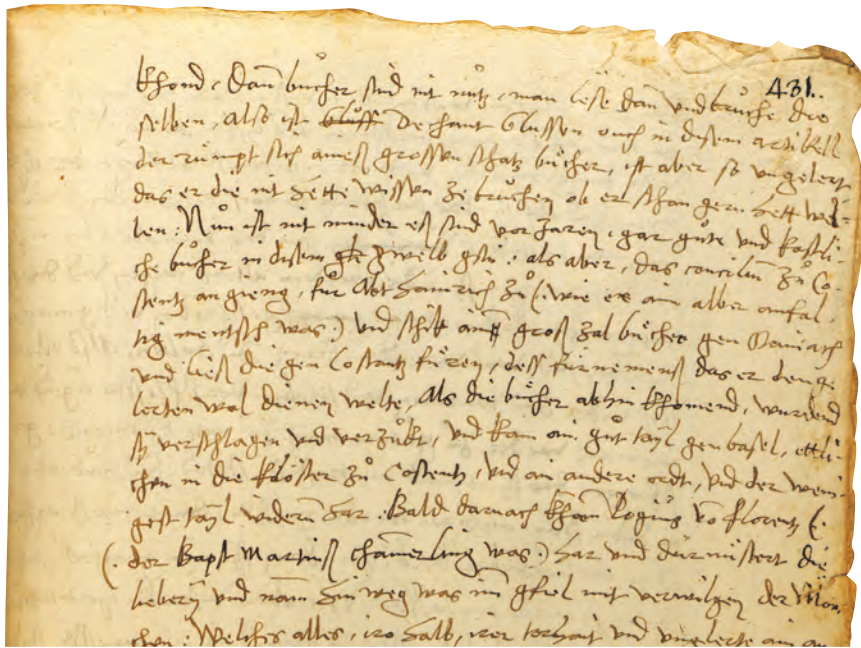 431.
khond, Dan̄ bůcher sind nit nütz, man lese dan vnd brůche die
selben, also ist Dechant Glussen ouch in disem artikell
der rümpt sich aineß grossen schatz bücher, ist aber so vngelert
das er die nit hette wissen ze bruchen ob er schon gern hett wel-
len: Nun ist nit minder eß sind vor Jaren, gar gůte vnd kostli-
che bůcher in disem gwelb gsin: als aber, das conciliū zů Co-
stentz angieng, fůr Abt Hainrich zů (: wie er ain alber ainfal-
tig mentsch was:) vnd schikt groß zal bůcher gen
vnd ließ die gen Costantz fůren, deß fürnemenß das er den ge
lerten wol dienen welte, Als die bůcher abhin khomend, wurdend
sÿ verschlagen vnd verzukt, vnd kam ain gůt tayl gen basel, ettli-
chen in die klöster zů Costentz, vnd an andere ordt, vnd der weni-
gest tayl widerum̄ har. Bald darnach kham̄ Pogius võ florentz (:
(: der Bapst Martinß cham̄erling was:) har vnd durmustert die
lieberÿ vnd nam hinweg was im gfiel mit verwilgen der Mön-
chen: Welches alles, iro halb, irer torhait vnd vngelerte ain